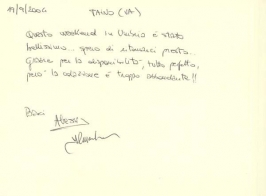 19/9/2004 TAINO (VA)
Questo weekend in Umbria è stato
bellissimo... spero di ritornarci presto...
Grazie per la disponibilità, tutto perfetto,
però la colazione è troppo abbondante!!
Baci